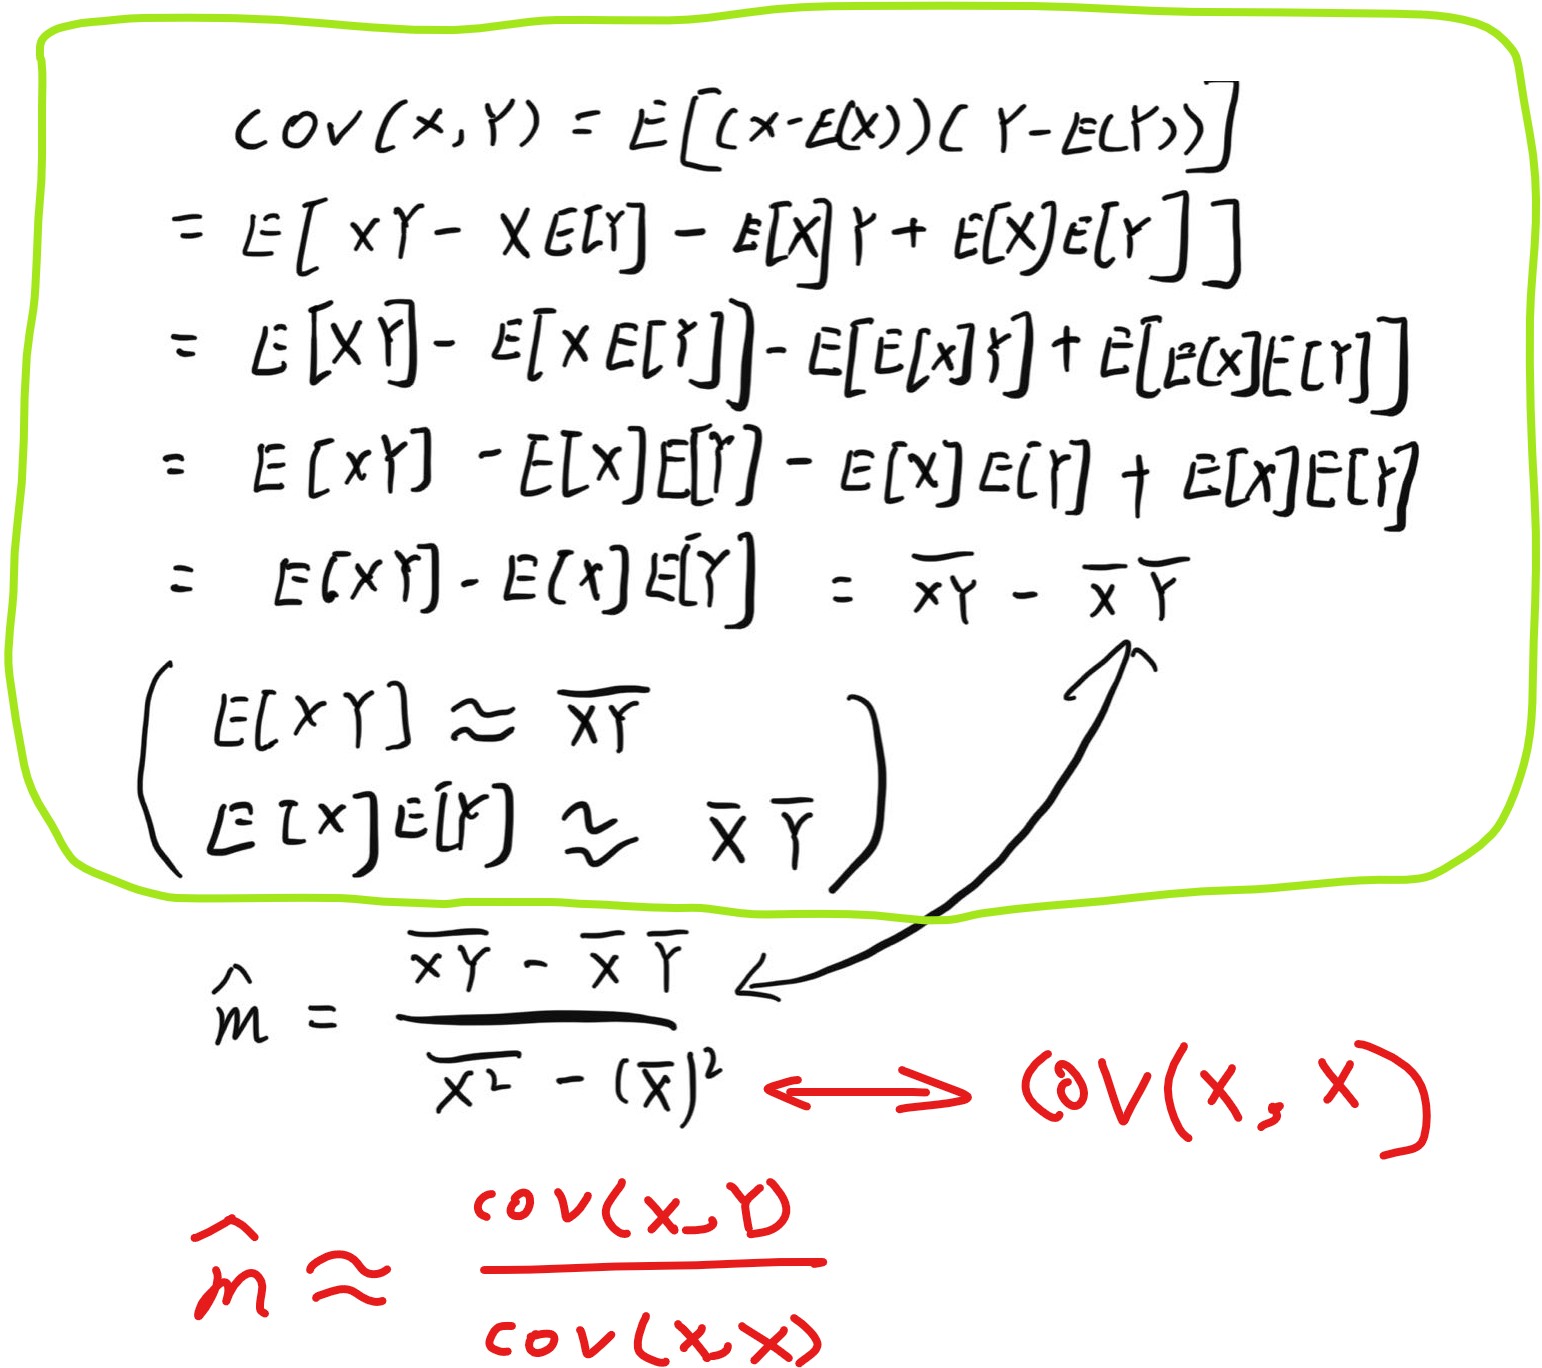 cov(x, Y) = E[(x-E(X))(Y-E(Y))]
= E[xY - XE[Y] - E[X]Y + E[X]E[Y]]
= E[XY] - E[XE[Y]] - E[E[X]Y] + E[E[X]E[Y]]
= E[XY] - E[X]E[Y] - E[X]E[Y] + E[X]E[Y]
= E[XY] - E[X]E[Y] = \overline{XY} - \overline{X} \overline{Y}
E[XY] ≈ \overline{XY}
E[X]E[Y] ≈ \overline{X} \overline{Y}
\hat{m} = \frac{\overline{XY} - \overline{X} \overline{Y}}{\overline{X^2} - (\overline{X})^2} ↔ COV(X, X)
\hat{m} ≈ \frac{cov(X, Y)}{cov(X, X)}